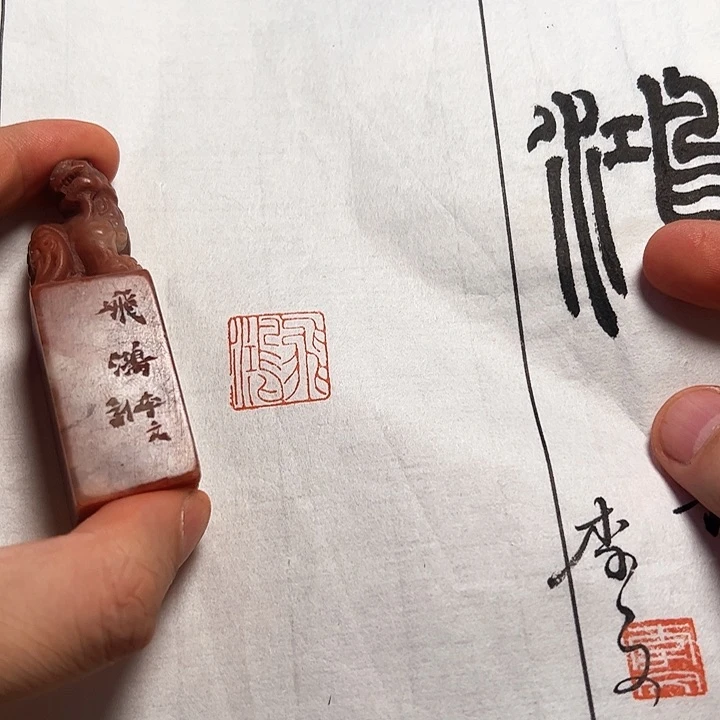 飛鴻
李文
刻
飛鴻
鴻
李文